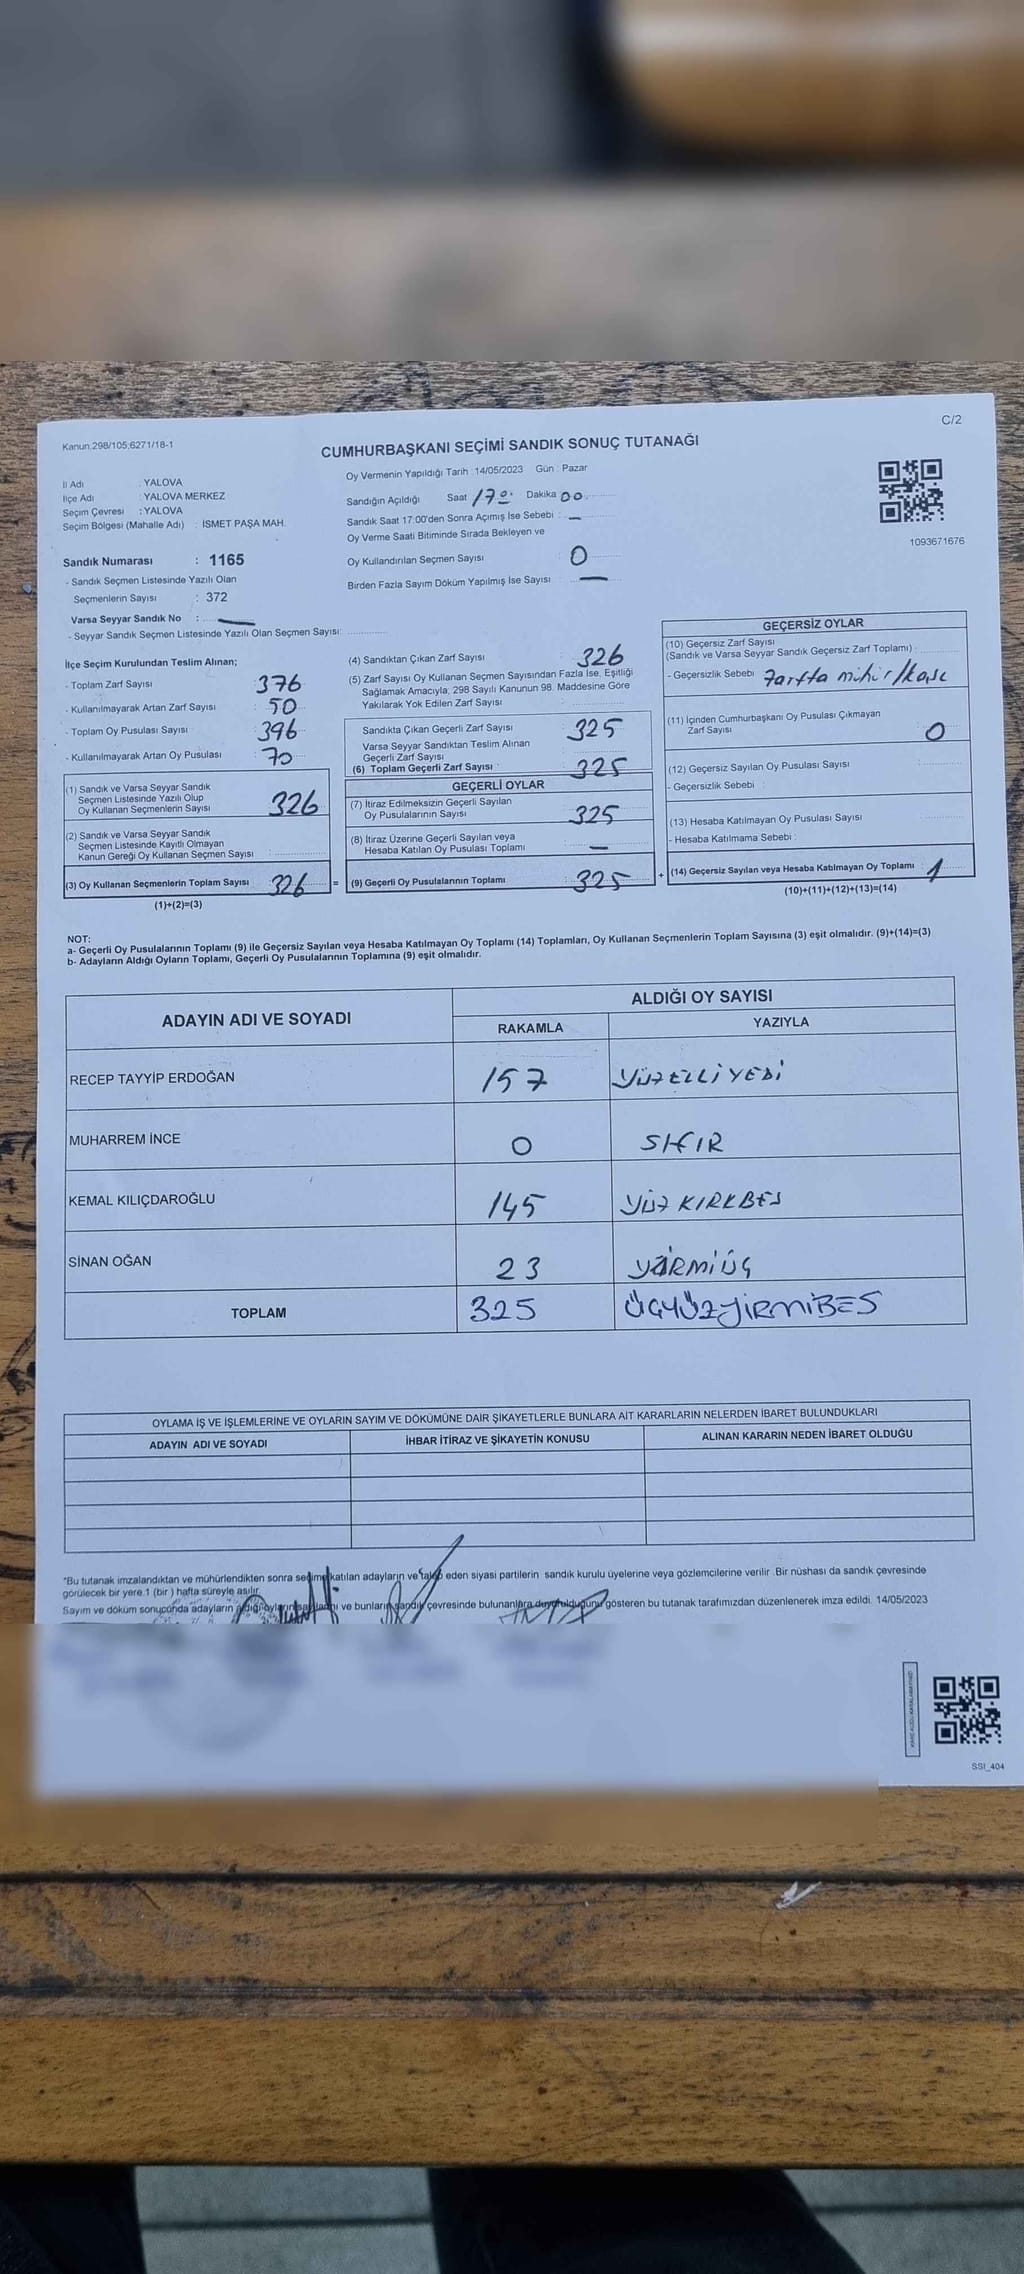 C/2
Kanun;298/105;6271/18-1
CUMHURBAŞKANI SEÇİMİ SANDIK SONUÇ TUTANAĞI
İl Adı : YALOVA
İlçe Adı : YALOVA MERKEZ
Seçim Çevresi : YALOVA
Seçim Bölgesi (Mahalle Adı) : İSMET PAŞA MAH.
Sandık Numarası : 1165
- Sandık Seçmen Listesinde Yazılı Olan
Seçmenlerin Sayısı : 372
Varsa Seyyar Sandık No : —
- Seyyar Sandık Seçmen Listesinde Yazılı Olan Seçmen Sayısı:
Oy Vermenin Yapıldığı Tarih : 14/05/2023 Gün : Pazar
Sandığın Açıldığı Saat 17 00 Dakika 00
Sandık Saat 17:00'den Sonra Açımış İse Sebebi : —
Oy Verme Saati Bitiminde Sırada Bekleyen ve
Oy Kullandırılan Seçmen Sayısı : 0
Birden Fazla Sayım Döküm Yapılmış İse Sayısı : —
1093671676
İlçe Seçim Kurulundan Teslim Alınan;
- Toplam Zarf Sayısı : 376
- Kullanılmayarak Artan Zarf Sayısı : 50
- Toplam Oy Pusulası Sayısı : 396
- Kullanılmayarak Artan Oy Pusulası : 70
(1) Sandık ve Varsa Seyyar Sandık
Seçmen Listesinde Yazılı Olup
Oy Kullanan Seçmenlerin Sayısı : 326
(2) Sandık ve Varsa Seyyar Sandık
Seçmen Listesinde Kayıtlı Olmayan
Kanun Gereği Oy Kullanan Seçmen Sayısı :
(3) Oy Kullanan Seçmenlerin Toplam Sayısı : 326 =
(1)+(2)=(3)
(4) Sandıktan Çıkan Zarf Sayısı : 326
(5) Zarf Sayısı Oy Kullanan Seçmen Sayısından Fazla İse; Eşitliği
Sağlamak Amacıyla, 298 Sayılı Kanunun 98. Maddesine Göre
Yakılarak Yok Edilen Zarf Sayısı :
Sandıkta Çıkan Geçerli Zarf Sayısı : 325
Varsa Seyyar Sandıktan Teslim Alınan
Geçerli Zarf Sayısı
(6) Toplam Geçerli Zarf Sayısı : 325
GEÇERLİ OYLAR
(7) İtiraz Edilmeksizin Geçerli Sayılan
Oy Pusulalarının Sayısı : 325
(8) İtiraz Üzerine Geçerli Sayılan veya
Hesaba Katılan Oy Pusulası Toplamı : —
(9) Geçerli Oy Pusulalarının Toplamı : 325 +
GEÇERSİZ OYLAR
(10) Geçersiz Zarf Sayısı
(Sandık ve Varsa Seyyar Sandık Geçersiz Zarf Toplamı) :
- Geçersizlik Sebebi : Zarfta mihir/kaşe
(11) İçinden Cumhurbaşkanı Oy Pusulası Çıkmayan
Zarf Sayısı : 0
(12) Geçersiz Sayılan Oy Pusulası Sayısı :
- Geçersizlik Sebebi :
(13) Hesaba Katılmayan Oy Pusulası Sayısı :
- Hesaba Katılmama Sebebi :
(14) Geçersiz Sayılan veya Hesaba Katılmayan Oy Toplamı : 1
(10)+(11)+(12)+(13)=(14)
NOT:
a- Geçerli Oy Pusulalarının Toplamı (9) ile Geçersiz Sayılan veya Hesaba Katılmayan Oy Toplamı (14) Toplamları, Oy Kullanan Seçmenlerin Toplam Sayısına (3) eşit olmalıdır. (9)+(14)=(3)
b- Adayların Aldığı Oyların Toplamı, Geçerli Oy Pusulalarının Toplamına (9) eşit olmalıdır.
ADAYIN ADI VE SOYADI
ALDIĞI OY SAYISI
RAKAMLA YAZIYLA
RECEP TAYYİP ERDOĞAN 157 YÜZELLİYEDİ
MUHARREM İNCE 0 SIFIR
KEMAL KILIÇDAROĞLU 145 YÜZ KIRKBEŞ
SİNAN OĞAN 23 YİRMİÜÇ
TOPLAM 325 ÜÇYÜZYİRMİBEŞ
OYLAMA İŞ VE İŞLEMLERİNE VE OYLARIN SAYIM VE DÖKÜMÜNE DAİR ŞİKAYETLERLE BUNLARA AİT KARARLARIN NELERDEN İBARET BULUNDUKLARI
ADAYIN ADI VE SOYADI İHBAR İTİRAZ VE ŞİKAYETİN KONUSU ALINAN KARARIN NEDEN İBARET OLDUĞU
*Bu tutanak imzalandıktan ve mühürlendikten sonra seçime katılan adayların ve talep eden siyasi partilerin sandık kurulu üyelerine veya gözlemcilerine verilir .Bir nüshası da sandık çevresinde
görülecek bir yere 1 (bir ) hafta süreyle asılır.
Sayım ve döküm sonucunda adayların aldığı oyların ve bunların sandık çevresinde bulunanlara duyurulduğunu gösteren bu tutanak tarafımızdan düzenlenerek imza edildi. 14/05/2023
SSI_404